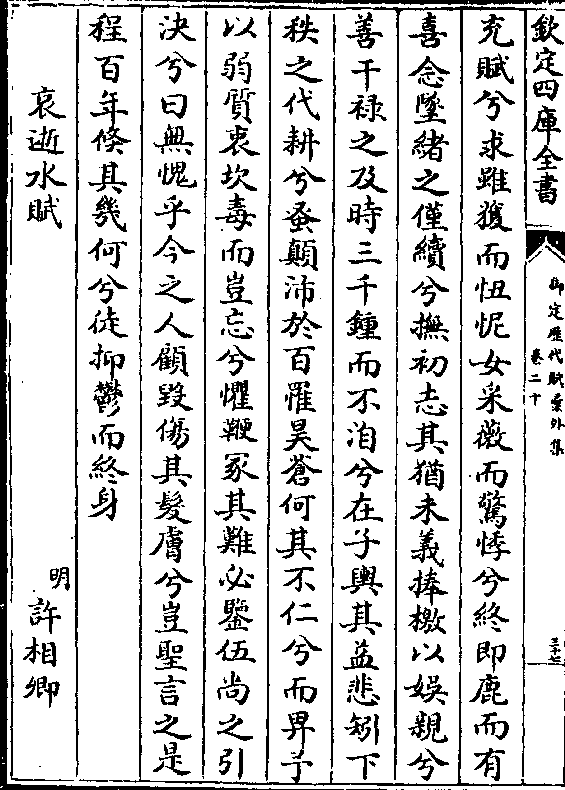 欽定四庫全書
御定歷代賦彙外集
卷二十
三十七
充賦兮求雖獲而忸怩女采薇而驚悸兮終即鹿而有
喜念墜緒之僅續兮撫初志其猶未義捧檄以娛親兮
善干祿之及時三千鍾而不洎兮在子輿其益悲矧下
秩之代耕兮蚤顛沛於百罹昊蒼何其不仁兮而畀予
以弱質衷坎毒而豈忘兮懼鞭冢其難必鑒伍尚之引
決兮曰無愧乎今之人顧毀傷其髮膚兮豈聖言之是
程百年倐其幾何兮徒抑鬱而終身
哀逝水賦
明
許相卿